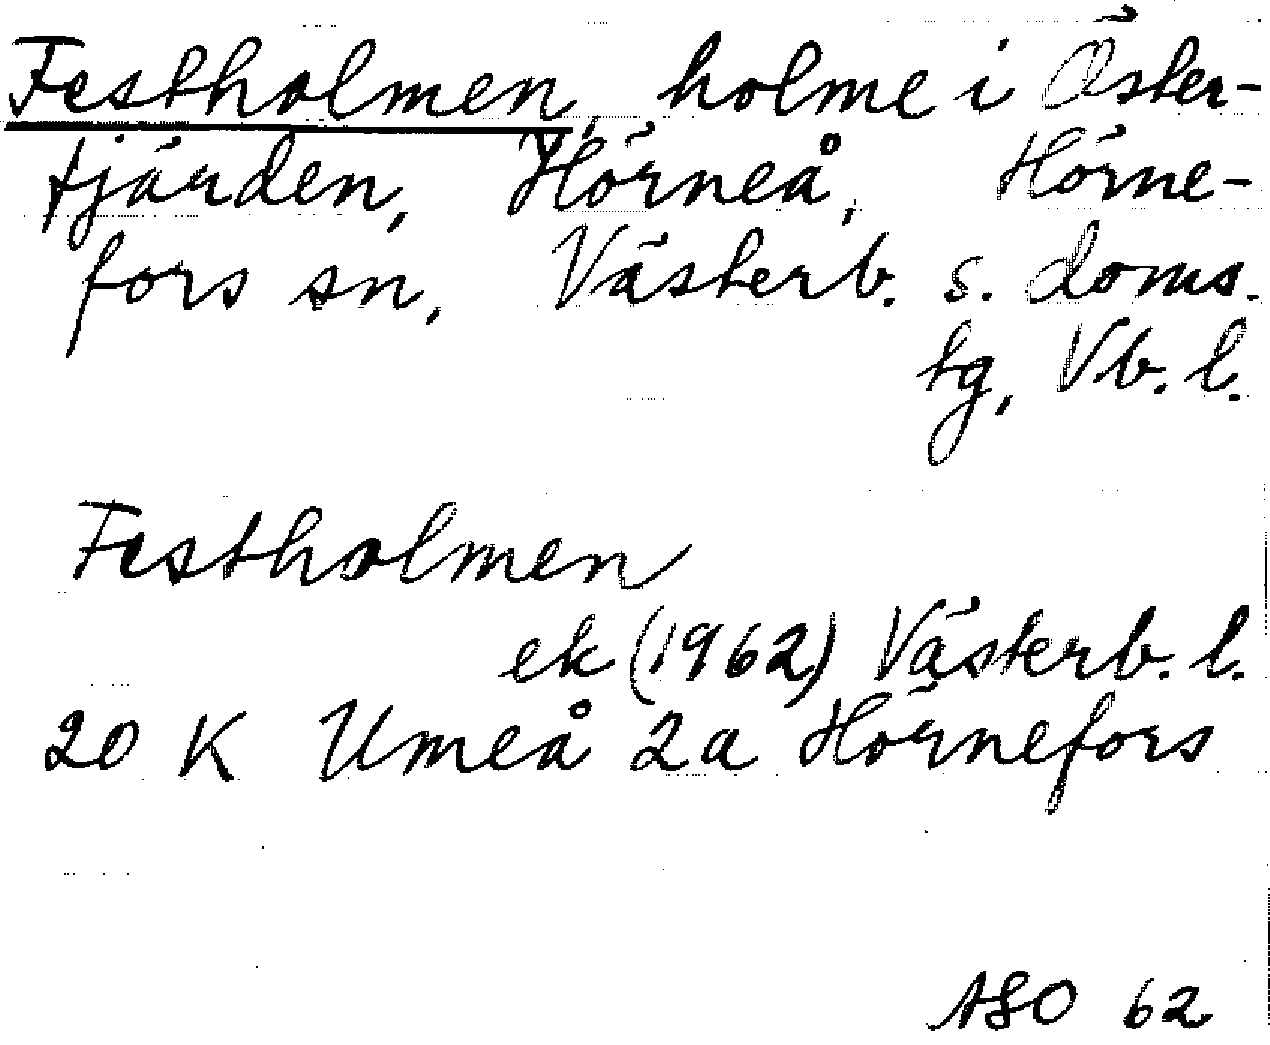 Festholmen, holme i Öster-
fjärden, Hörneå, Hörne-
fors sn, Västerb. s. doms.
tg, Vb. l.
Festholmen
ek (1962) Västerb. l.
20 K Umeå 2a Hörnefors
ASO 62